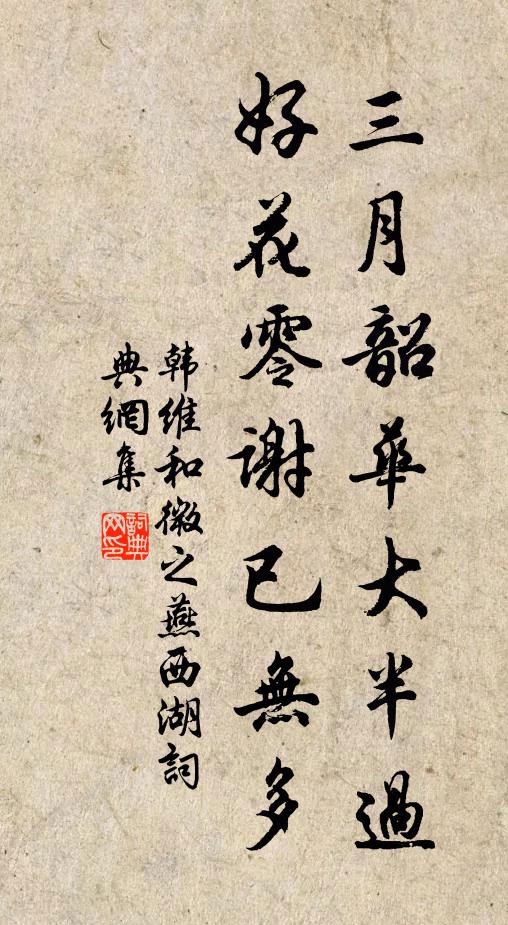 三月韶華大半過
好花零謝已無多
韩維和微之燕西湖詞
典網集
詞典网印